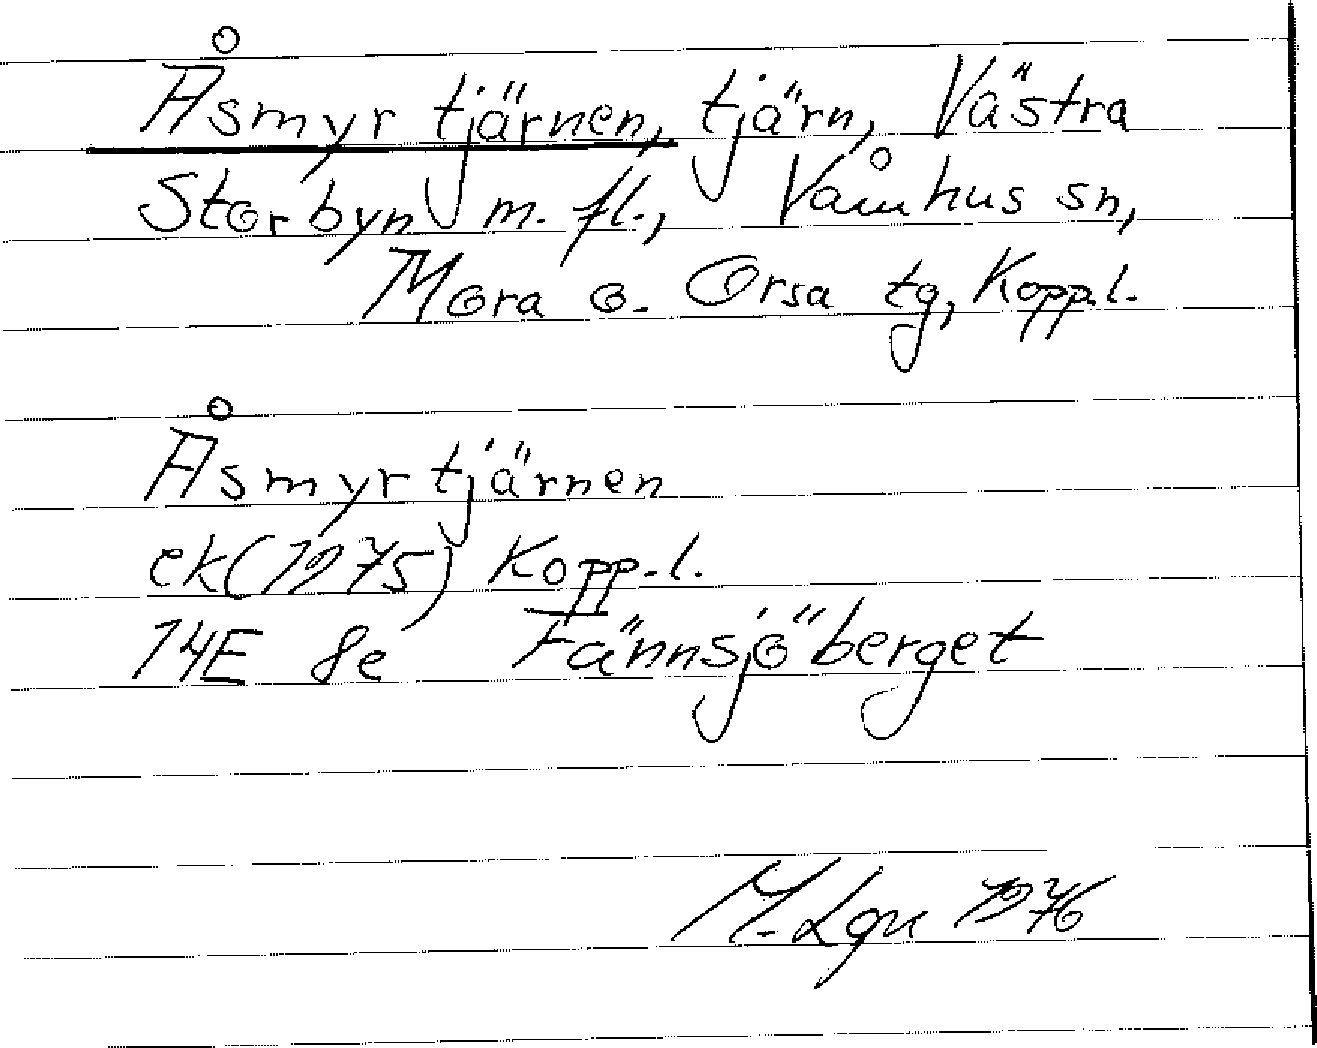 Åsmyrtjärnen, tjärn, Västra
Storbyn m. fl., Våmhus sn,
Mora o. Orsa tg, Kopp.l.
Åsmyrtjärnen
ek(1975) Kopp.l.
14E 8e Fännsjöberget
M. Lgn 1976